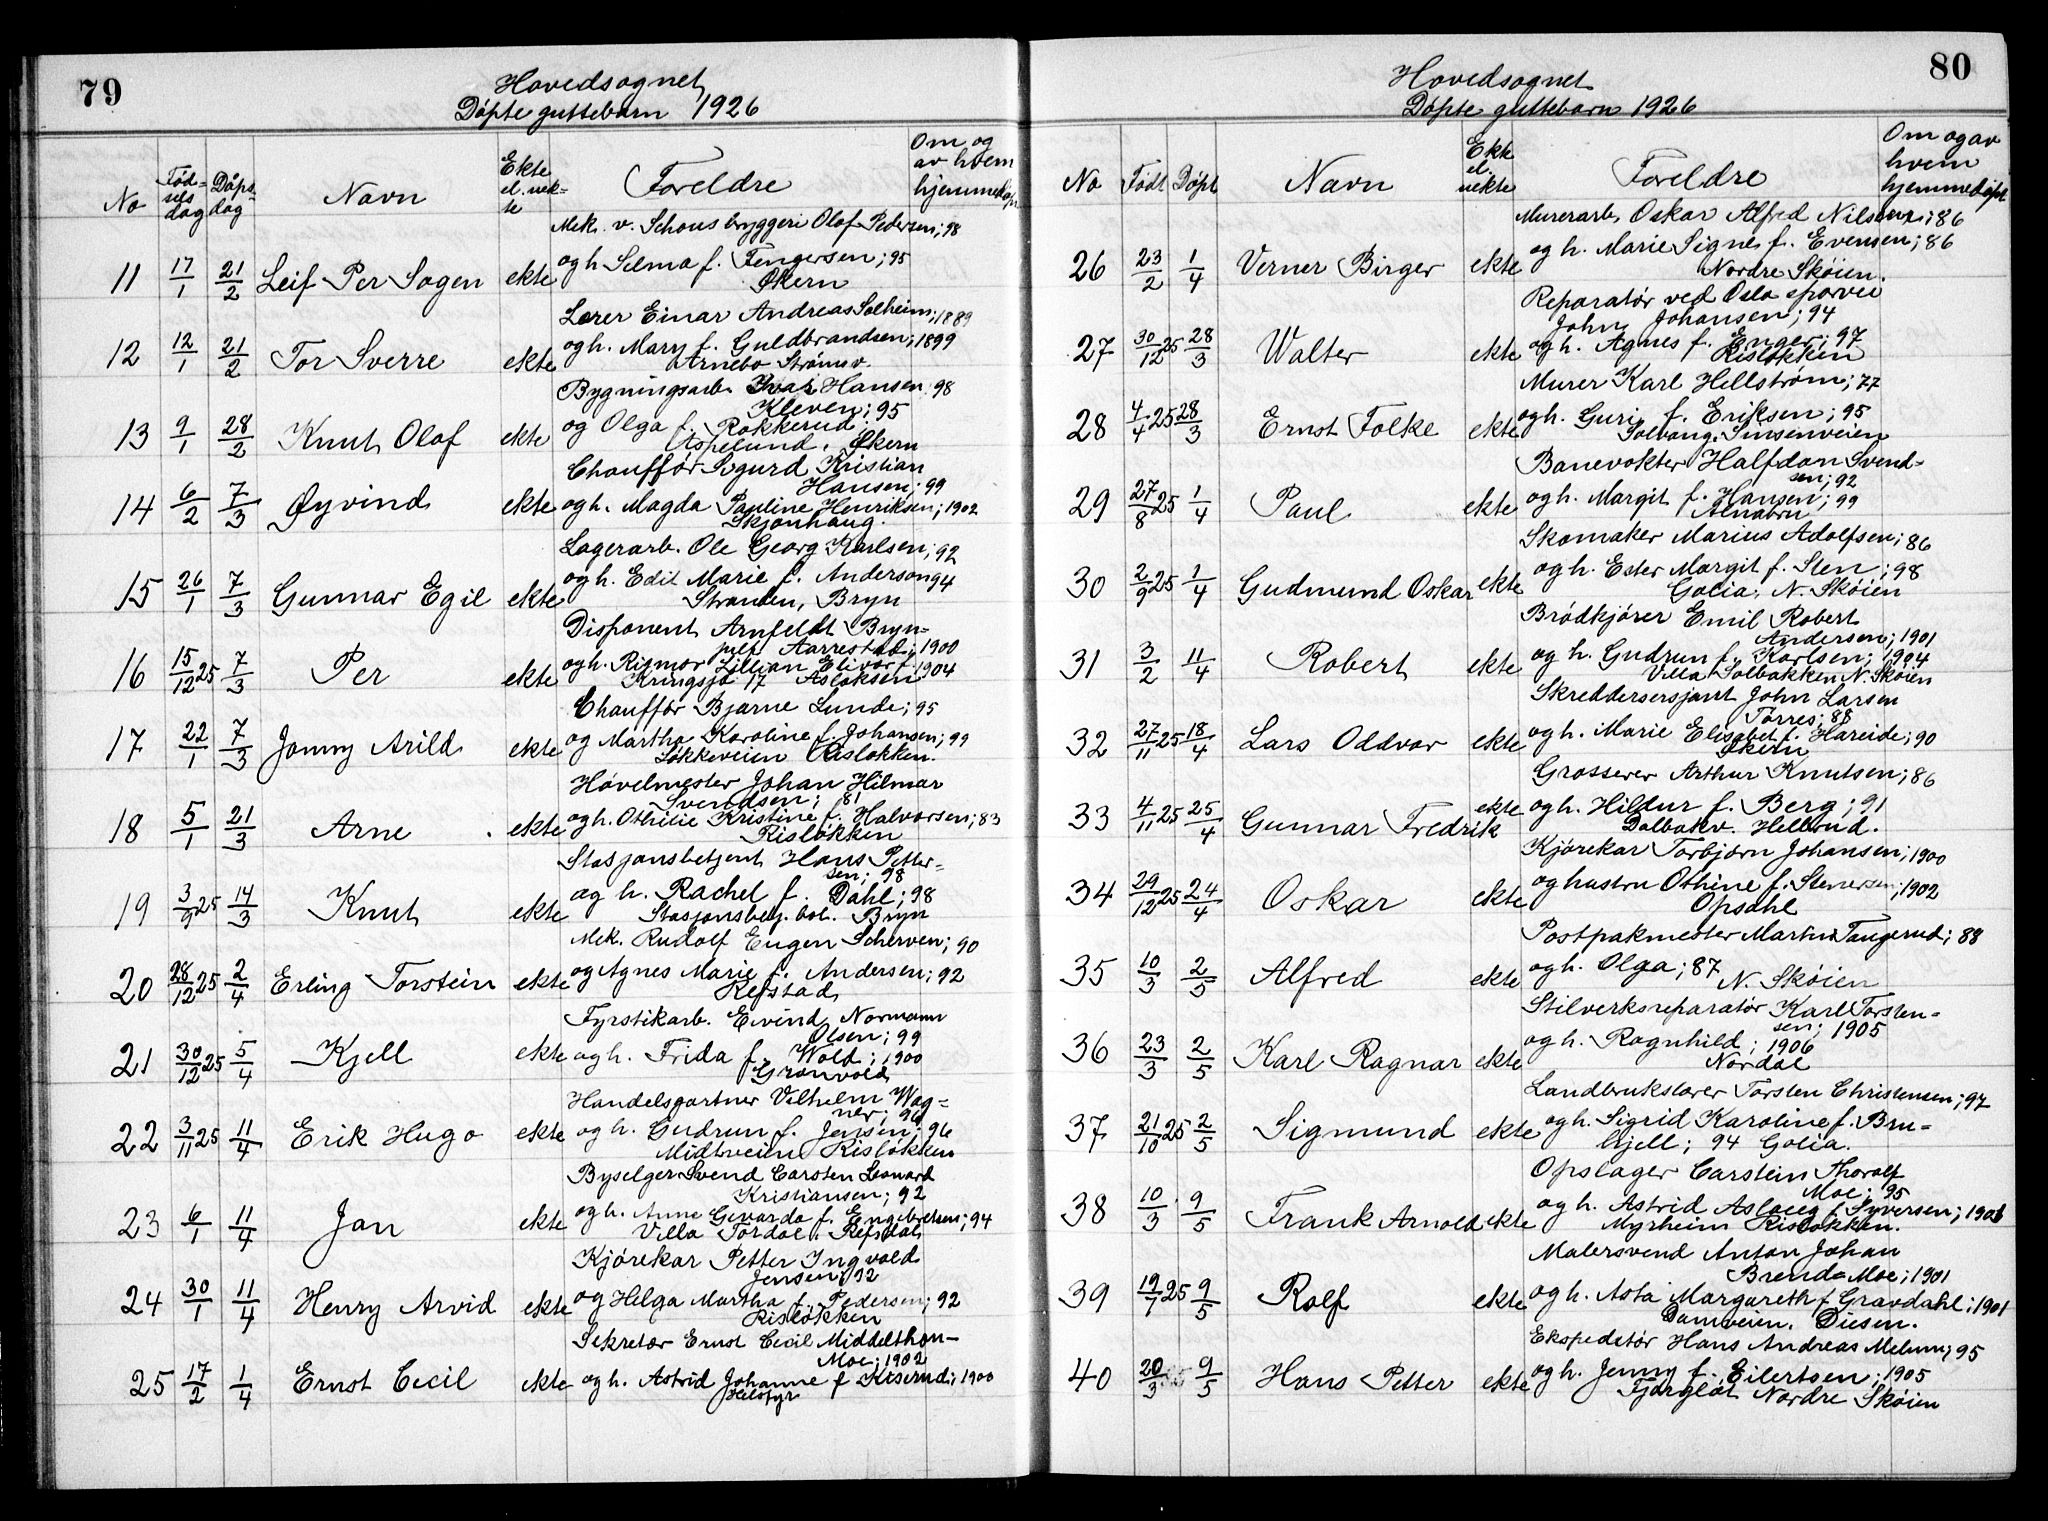 79
Hovedsognet
Døpte guttebarn 1926
No
Fød-
sels
dag
Døps-
dag
Navn
Ekte
el. uek-
te
Foreldre
Om og
av hvem
hjemmedøpt
Mek. v. Schous bryggeri Olaf Pedersen; 98
11 17/1 21/2 Leif Per Sagen ekte og h. Selma f. Fengersen; 95
Økern
Lærer Einar Andreas Solheim; 1889
12 12/1 21/2 Tor Sverre ekte og h. Mary f. Guldbrandsen; 1899
Arnebo Strømsv.
Bygningsarb. Ivar Hansen 98
Kleven; 95
13 9/1 28/2 Knut Olaf ekte og Olga f. Rakkerud
Aspelund. Økern
Chauffør Sigurd Kristian
Hansen; 99
14 6/2 7/3 Øyvind ekte og h. Magda Pauline Henriksen; 1902
Skjønhaug.
Lagerarb. Ole Georg Karlsen; 92
15 26/1 7/3 Gunnar Egil ekte og h. Edit Marie f. Anderson 94
Stranden, Bryn
Disponent Arnfeldt Bryn-
julf Aarrestad; 1900
16 15/12 25 7/3 Per ekte og h. Rigmor Lillian Elivar f. 1904
Kringsjå 17 Aslaksen
Chauffør Bjarne Lunde; 95
17 22/1 7/3 Jonny Arild ekte og Martha Karoline f. Johansen; 99
Løkkeveien Risløkken.
Høvelmester Johan Hilmar
Svendsen; 81
18 5/1 21/3 Arne ekte og h. Othilie Kristine f. Halvorsen; 83
Risløkken
Stasjonsbetjent Hans Petter-
sen; 98
19 3/9 25 14/3 Knut ekte og h. Rachel f. Dahl; 98
Stasjonsbetj. bol. Bryn
Mek. Rudolf Eugen Scherven; 90
20 28/12 25 2/4 Erling Torstein ekte og Agnes Marie f. Andersen; 92
Refstad
Fyrstikarb. Eivind Normann
Olsen; 99
21 30/12 25 5/4 Kjell ekte og h. Frida f. Wold; 1900
Grønvold
Handelsgartner Vilhelm Wag-
ner; 96
22 3/11 25 11/4 Erik Hugo ekte og h. Gudrun f. Jensen; 96
Midtveien Risløkken
Byselger Svend Carsten Leonard
Kristiansen; 92
23 6/1 11/4 Jan ekte og h. Anne Gevarda f. Engebretsen; 94
Villa Fordal. Refstal
Kjørekar Petter Ingvald
Jensen; 92
24 30/1 11/4 Henry Arvid ekte og Helga Martha f. Pedersen; 92
Risløkken
Sekretær Ernst Cecil Middelthon-
Moe; 1902
25 17/2 1/4 Ernst Cecil ekte og h. Astrid Johanne f. Kiserud; 1900
80
Hovedsognet
Døpte guttebarn 1926
No Født Døpt Navn
Ekte
el.
uekte
Foreldre
Om og av
hvem
hjemmedøpt
Murerarb. Oskar Alfred Nilsen; 86
26 23/2 1/4 Verner Birger ekte og h. Marie Signe f. Evensen; 86
Nordre Skøien.
Reparatør ved Oslo sporvei
John Johansen; 94
27 30/12 25 28/3 Walter ekte og h. Agnes f. Enger; 97
Risløkken
Murer Karl Hellstrøm; 77
28 4/4 25 28/3 Ernst Folke ekte og h. Guri f. Eriksen; 95
Solvang. Sinsenveien
Banevokter Halfdan Svend-
sen; 92
29 27/8 25 1/4 Paul ekte og h. Margit f. Hansen; 99
Alnabru
Skomaker Marius Adolfsen; 86
30 2/9 25 1/4 Gudmund Oskar ekte og h. Ester Margit f. Sten; 98
Golia. N. Skøien
Brødkjører Emil Robert
Andersen; 1901
31 3/2 11/4 Robert ekte og h. Gudrun f. Karlsen; 1904
Villa Solbakken N. Skøien
Skreddersersjant John Larsen
Tørres; 88
32 27/11 25 18/4 Lars Oddvar ekte og h. Marie Elisabet f. Hareide; 90
Økern
Grosserer Arthur Knutsen; 86
33 4/11 25 25/4 Gunnar Fredrik ekte og h. Hildur f. Berg; 91
Dalbakv. Hellerud.
Kjørekar Torbjørn Johansen; 1900
34 29/12 25 24/4 Oskar ekte og hustru Othine f. Stenersen; 1902
Opsahl
Postpakmester Martin Tangerud; 88
35 10/3 2/5 Alfred ekte og h. Olga; 87
N. Skøien
Stilverksreparatør Karl Torsten-
sen; 1905
36 23/3 2/5 Karl Ragnar ekte og h. Ragnhild; 1906
Nordal
Landbrukslærer Torsten Christensen; 97
37 21/10 25 2/5 Sigmund ekte og h. Sigrid Karoline f. Bru-
kjell; 94 Golia.
Opslager Carstein Thoralf
Moe; 95
38 10/3 9/5 Frank Arnold ekte og h. Astrid Aslaug f. Syversen; 1901
Myrheim Risløkken.
Malersvend Anton Johan
Brenda Moe; 1901
39 19/7 25 9/5 Rolf ekte og h. Asta Margareth f. Gravdahl; 1901
Damveien. Disen.
Ekspeditør Hans Andreas Melum; 95
40 20/3 9/5 Hans Petter ekte og h. Jenny f. Eilertsen; 1905
Fjørgløt Nordre Skøien